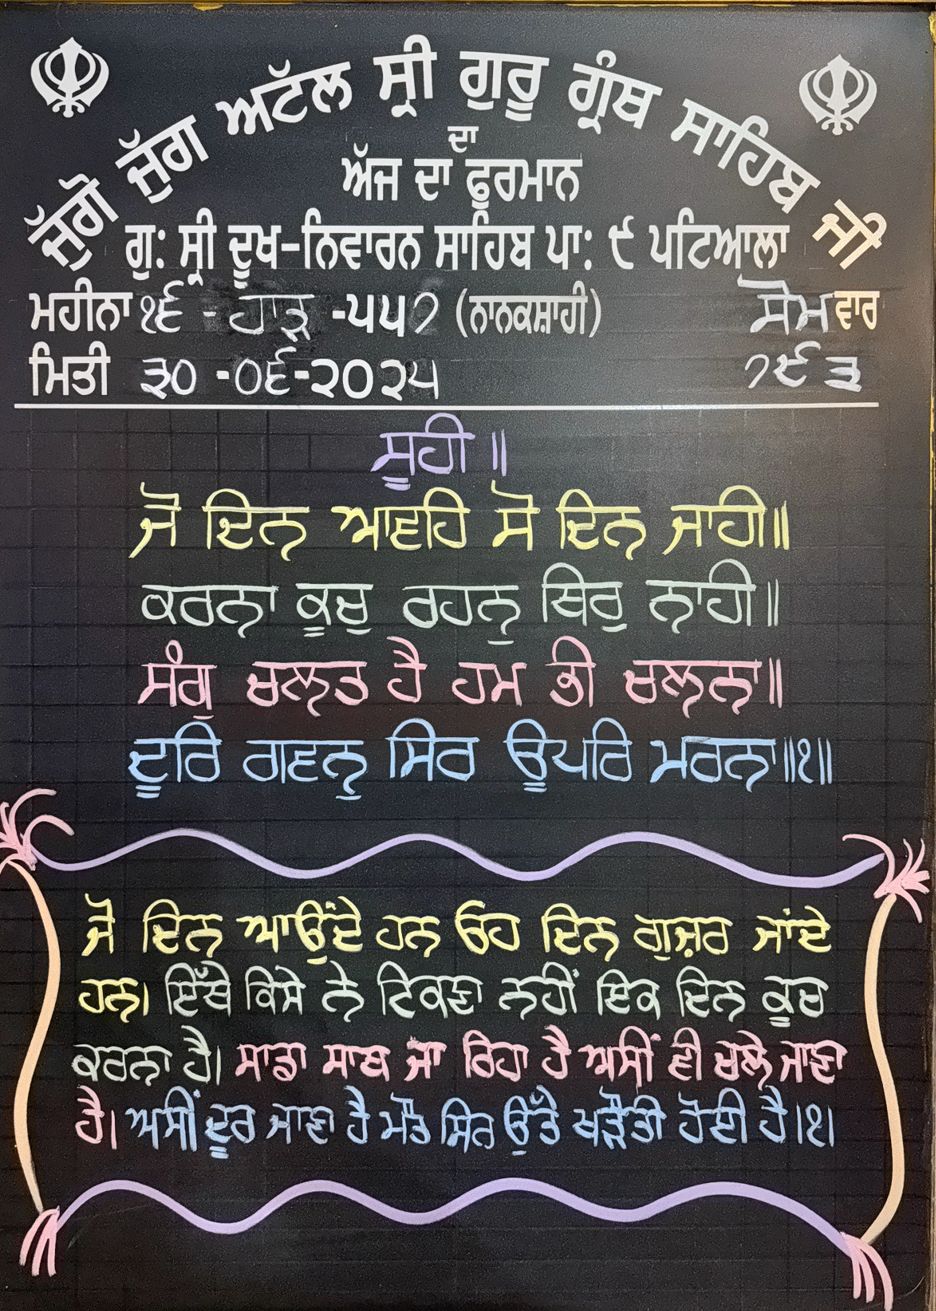 ਜੁੱਗੋ ਜੁੱਗ ਅਟੱਲ ਸ੍ਰੀ ਗੁਰੂ ਗ੍ਰੰਥ ਸਾਹਿਬ ਜੀ
ਦਾ
ਅੱਜ ਦਾ ਫੁਰਮਾਨ
ਗੁ: ਸ੍ਰੀ ਦੂਖ-ਨਿਵਾਰਨ ਸਾਹਿਬ ਪਾ: ੯ ਪਟਿਆਲਾ
ਮਹੀਨਾ ੧੬ - ਹਾੜ -੫੫੭ (ਨਾਨਕਸ਼ਾਹੀ) ਸੋਮਵਾਰ
ਮਿਤੀ ੩੦ -੦੬-੨੦੨੫ ੭੯੩
ਸੂਹੀ ॥
ਜੋ ਦਿਨ ਆਵਹਿ ਸੋ ਦਿਨ ਜਾਹੀ॥
ਕਰਨਾ ਕੂਚੁ ਰਹਨੁ ਥਿਰੁ ਨਾਹੀ॥
ਸੰਗੁ ਚਲਤ ਹੈ ਹਮ ਭੀ ਚਲਨਾ॥
ਦੂਰਿ ਗਵਨੁ ਸਿਰ ਊਪਰਿ ਮਰਨਾ॥੧॥
ਜੋ ਦਿਨ ਆਉਂਦੇ ਹਨ ਓਹ ਦਿਨ ਗੁਜ਼ਰ ਜਾਂਦੇ
ਹਨ। ਇੱਥੇ ਕਿਸੇ ਨੇ ਟਿਕਣਾ ਨਹੀਂ ਇਕ ਦਿਨ ਕੂਚ
ਕਰਨਾ ਹੈ। ਸਾਡਾ ਸਾਥ ਜਾ ਰਿਹਾ ਹੈ ਅਸੀਂ ਵੀ ਚਲੇ ਜਾਣਾ
ਹੈ। ਅਸੀਂ ਦੂਰ ਜਾਣਾ ਹੈ ਮੌਤ ਸਿਰ ਉੱਤੇ ਖੜੌਤੀ ਹੋਈ ਹੈ।੧।